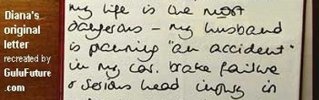 Diana's
original
letter
recreated by
GuluFuture
.com
my life is the most
dangerous - my husband
is planning "an accident"
in my car. brake failure
& serious head injury in